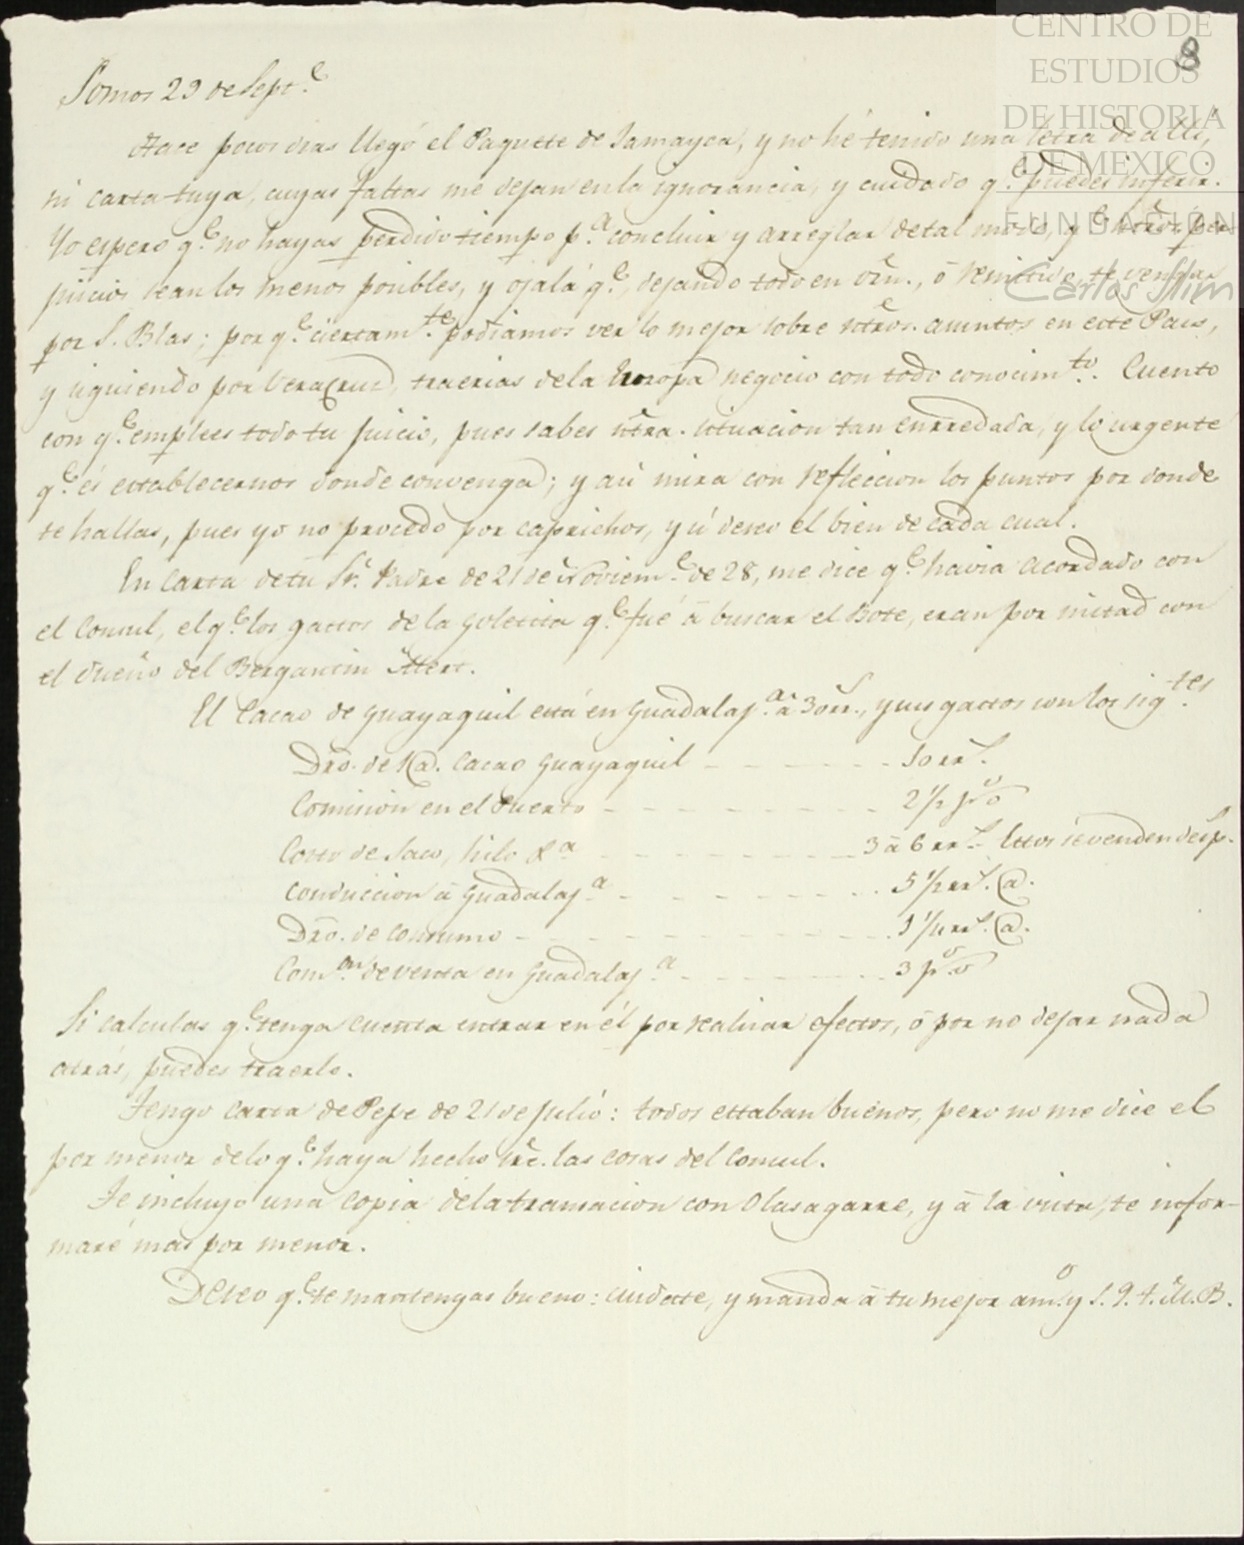 CENTRO DE
ESTUDIOS
DE HISTORIA
DE MÉXICO
FUNDACIÓN
Carlos Slim
8
Somos 29 de Sept.e
Hace pocos dias llegó el Paquete de Jamayca, y no hé tenido una letra de alli,
ni carta tuya, cuyas faltas me dejan en la ignorancia, y cuidado q.e puedes inferir.
Yo espero q.e no hayas perdido tiempo p.a concluir y arreglar de tal modo, q.e ntros per
juicios sean los menos posibles, y ojalá q.e, dejando todo en orn., ó remitido, te vengas
por S. Blas; por q.e ciertam.te podiamos ver lo mejor sobre ntros. asuntos en este Pais,
y siguiendo por Veracruz, traerias de la Europa negocio con todo conocim.to. Cuento
con q.e emplees todo tu juicio, pues sabes ntra. situacion tan enrredada, y lo urgente
q.e és establecernos donde convenga; y asi mira con refleccion los puntos por donde
te hallas, pues yo no procedo por caprichos, y si deseo el bien de cada cual.
En carta de tu Sr. Padre de 21 de Noviem.e de 28, me dice q.e havia acordado con
el Consul, el q.e los gastos de la Goletita q.e fué á buscar el Bote, eran por mitad con
el dueño del Bergantin Merc.
El Cacao de Guayaquil está en Guadalaj.a á 30 rr.s, y sus gastos son los sig.tes
Dro. de 1 @. Cacao Guayaquil - - - - - 10 rr.s
Comision en el Puerto - - - - - - - 2 1/2 p%
Costo de Saco, hilo &a - - - - - - - 3 á 6 rr.s Estos se venden desp.s
Conduccion á Guadalaj.a - - - - - - - 5 1/2 rr.s @.
Dro. de consumo - - - - - - - - - 1 1/4 rr.s @.
Com.on de venta en Guadalaj.a - - - - - - 3 p%
Si calculas q.e tenga cuenta entrar en él por realizar efectos, ó por no dejar nada
atrás, puedes traerlo.
Tengo carta de Pepe de 21 de Julió: todos estaban buenos, pero no me dice el
por menor de lo q.e haya hecho sre. las cosas del Consul.
Te incluyo una copia de la transacion con Olasagarre, y á la vista, te infor-
maré mas por menor.
Deseo q.e te mantengas bueno: cuidate, y manda á tu mejor am.o y S. Q. T. M. B.